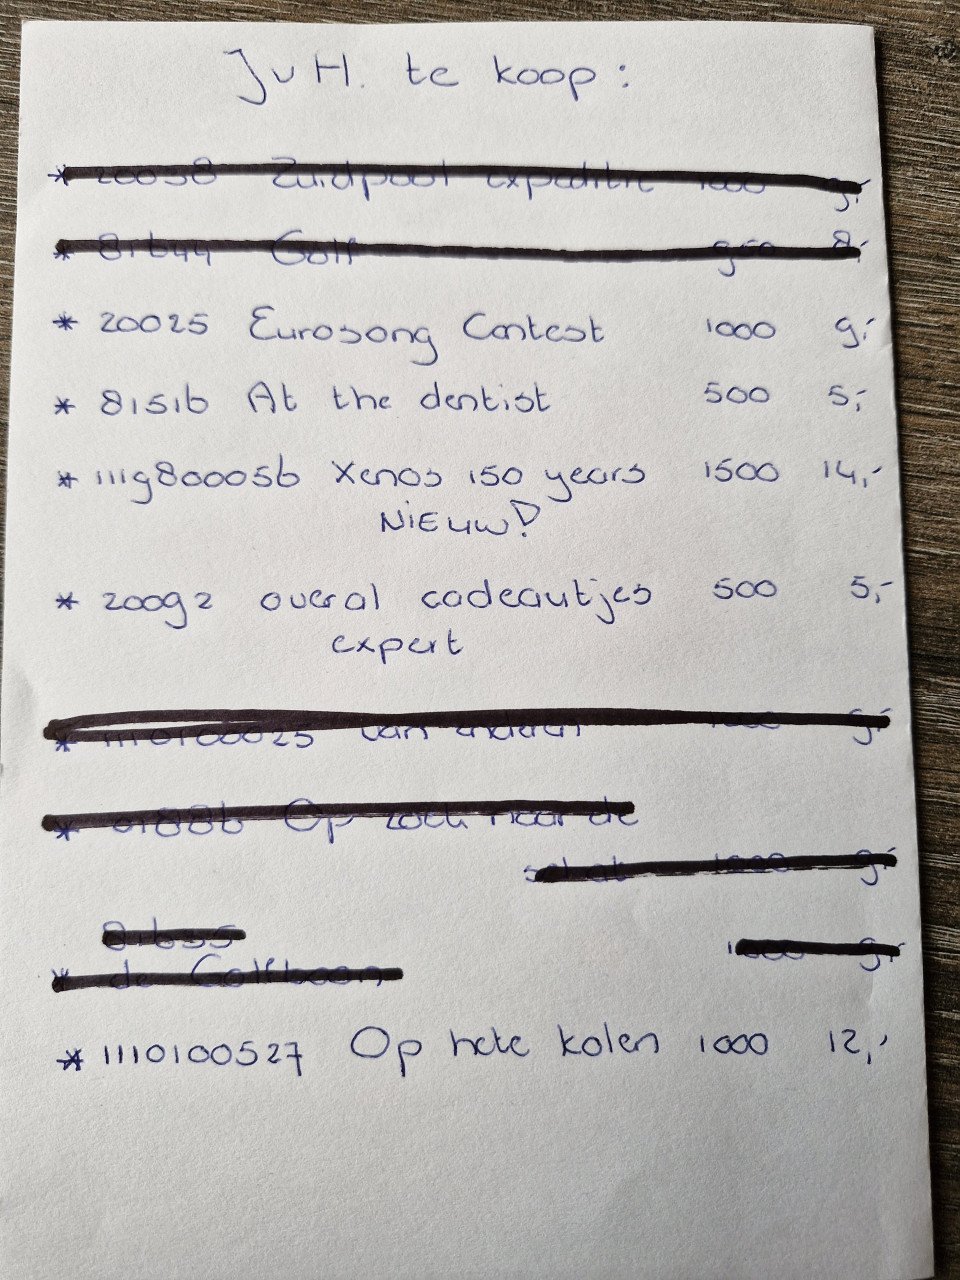 JvH. te koop:
* 20058 Zuidpool expeditie 1000 9,-
* 81644 Golf 950 8,-
* 20025 Eurosong Contest 1000 9,-
* 81516 At the dentist 500 5,-
* 1119800056 Xenos 150 years 1500 14,-
NIEUW!
* 20092 overal cadeautjes 500 5,-
expert
* 1110100025 van anderen 1000 9,-
* 01886 Op zoek naar de
schat 1000 9,-
81655
* de Golfbaan, 1000 9,-
* 1110100527 Op hete kolen 1000 12,-